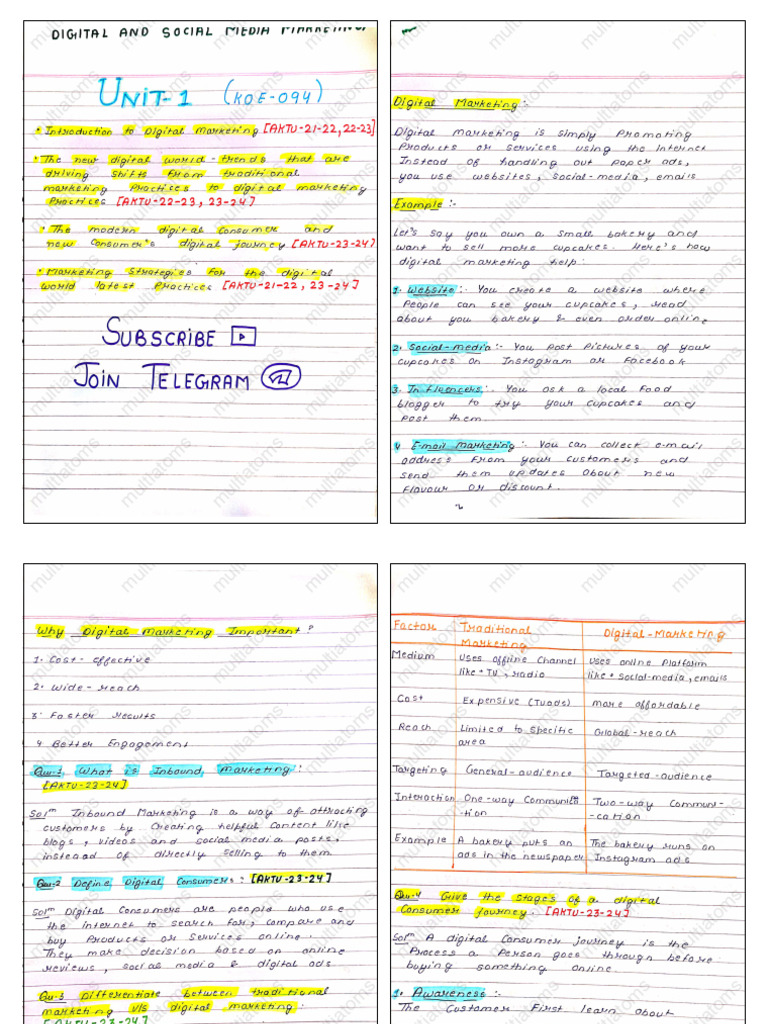 DIGITAL AND SOCIAL MEDIA MARKETING
UNIT-1 (KOE-094)
• Introduction to Digital Marketing [AKTU-21-22, 22-23]
• The new digital world-trends that are
driving shifts from traditional
marketing Practices to digital marketing
Practices [AKTU-22-23, 23-24]
• The modern digital Consumer and
new Consumer's digital journey [AKTU-23-24]
• Marketing Strategies for the digital
world latest Practices [AKTU-21-22, 23-24]
SUBSCRIBE
JOIN TELEGRAM
Digital Marketing :-
Digital marketing is simply Promoting
Products or Services using the internet
Instead of handing out paper ads,
you use websites, social-media, emails
Example :-
Let's say you own a small bakery and
want to sell more cupcakes. Here's how
digital marketing help:
1. Website :- You create a website where
People can see your cupcakes, read
about you bakery & even order online
2. Social-media :- You Post Pictures of your
cupcakes on Instagram or Facebook
3. Influencers :- You ask a local Food
blogger to try your cupcakes and
Post them.
4 E-mail marketing :- You can collect e-mail
address from your customers and
send them updates about new
flavour or discount.
Why Digital Marketing Important ?
1. Cost-effective
2. Wide-reach
3. Faster results
4. Better Engagement
Que-1 What is Inbound marketing :
[AKTU-23-24]
Solⁿ Inbound Marketing is a way of attracting
customers by Creating helpful Content like
blogs, videos and social media posts,
instead of directly selling to them.
Que-2 Define Digital Consumers : [AKTU-23-24]
Solⁿ Digital Consumers are people who use
the internet to search for, compare and
buy Products or Services online.
They make decision based on online
reviews, social media & digital ads.
Qu-3 Differentiate between traditional
marketing v/s digital marketing :
[AKTU-23-24]
Factor Traditional Marketing Digital-Marketing
Medium Uses offline Channel like • TV, radio Uses online Platform like • social-media, emails
Cost Expensive (TV ads) more affordable
Reach Limited to Specific area Global-reach
Targeting General-audience Targeted-audience
Interaction One-way Communication Two-way Commun--cation
Example A bakery puts an ads in the newspaper The bakery runs on Instagram ads
Qu-4 Give the stages of a digital
Consumer journey. [AKTU-23-24]
Solⁿ A digital Consumer journey is the
Process a Person goes through before
buying something online.
1. Awareness :-
The Customer First learn about
multiatoms